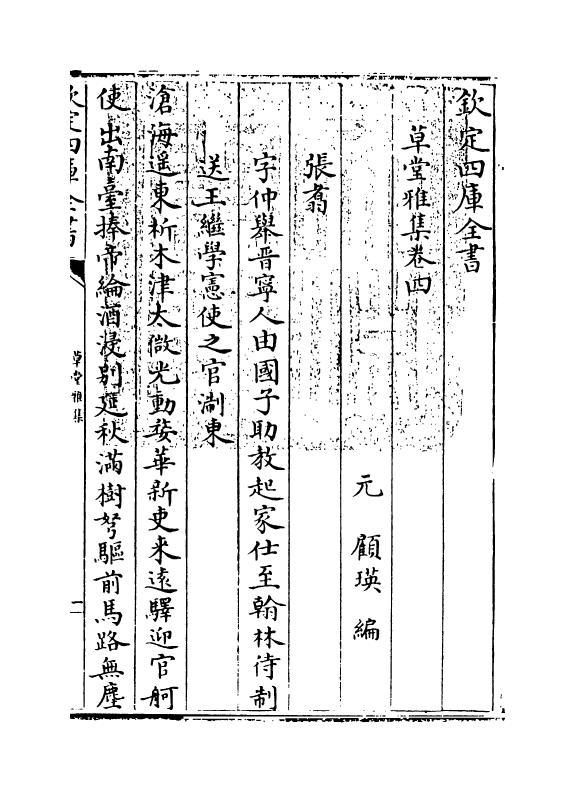 欽定四庫全書
草堂雅集卷四
元　顧瑛　編
張翥
字仲舉晋寧人由國子助教起家仕至翰林待制
送王繼學憲使之官淛東
滄海遥東析木津太微光動婺華新吏来遠驛迎官舸
使出南臺捧帝綸酒浸别筵秋滿樹弩驅前馬路無塵
欽定四庫全書
草堂雅集
一